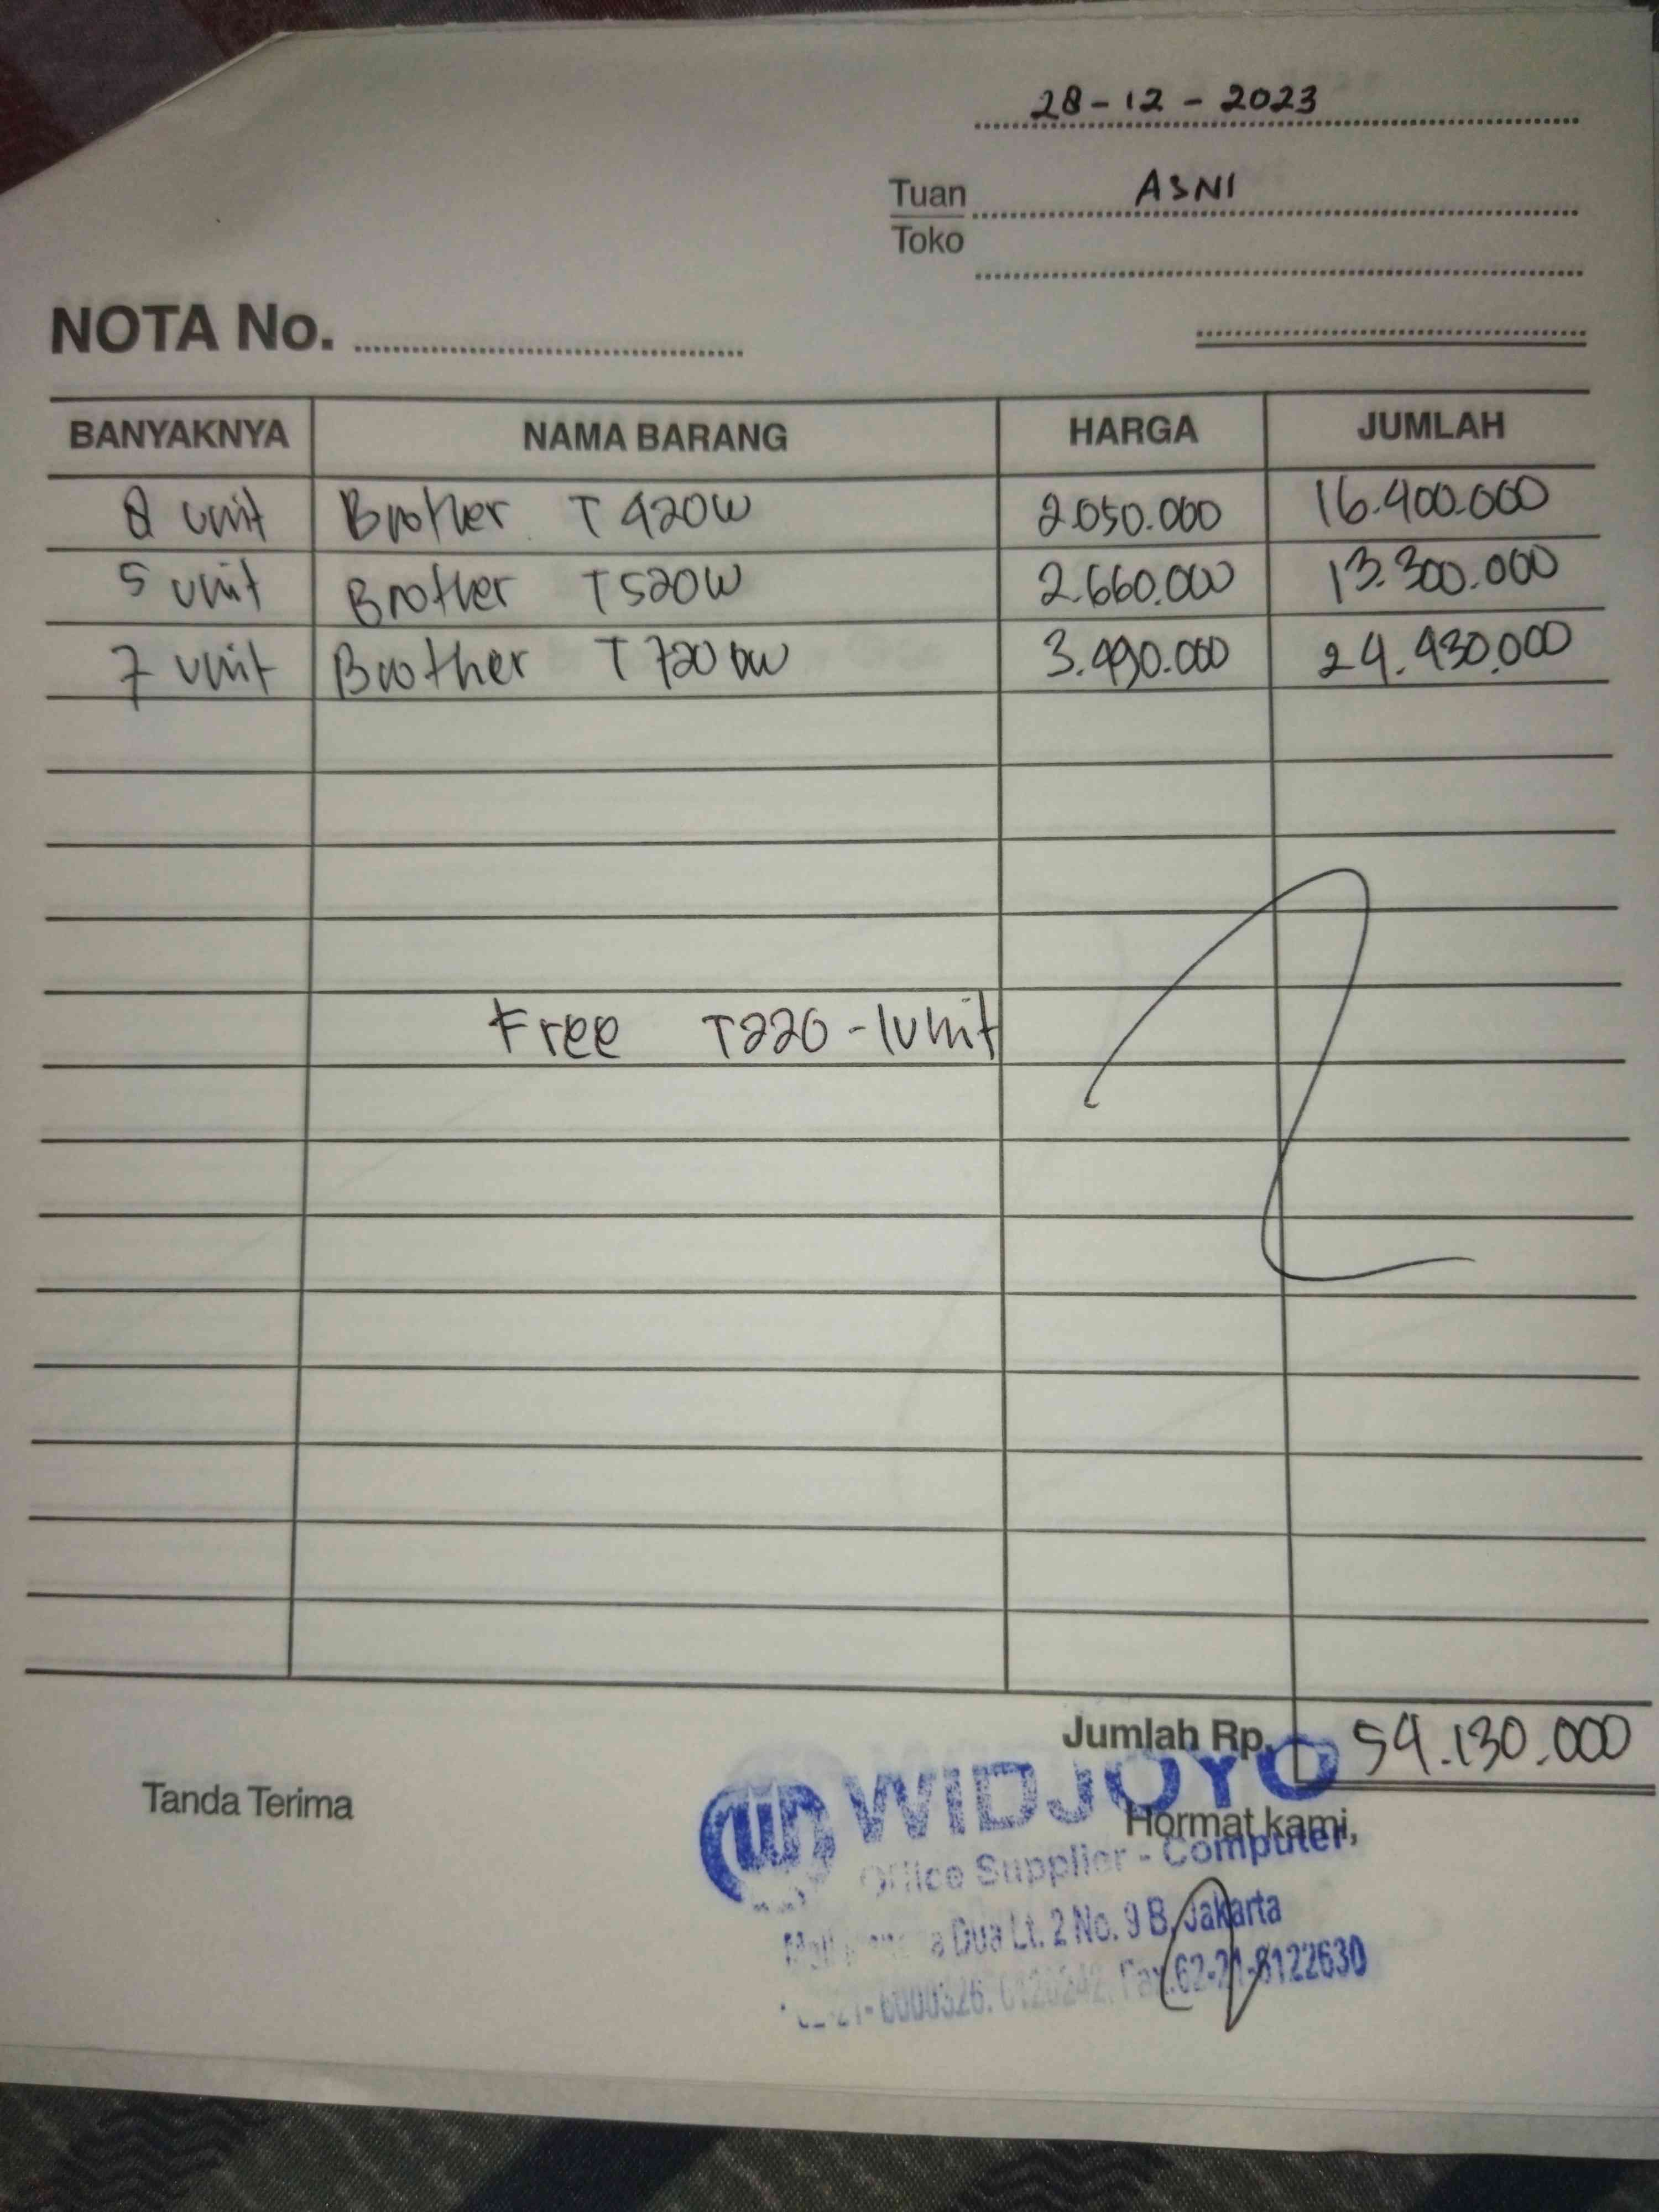 28-12-2023
Tuan ASNI
Toko
NOTA No.
BANYAKNYA NAMA BARANG HARGA JUMLAH
8 unit Brother T420W 2.050.000 16.400.000
5 unit Brother T520W 2.660.000 13.300.000
7 unit Brother T720DW 3.490.000 24.430.000
Free T220-1unit
Jumlah Rp. 54.130.000
Tanda Terima
Hormat kami,
WIDJOYO
Office Supplier - Computer
Dua Lt. 2 No. 9 B, Jakarta
Fax.62-21-6122630